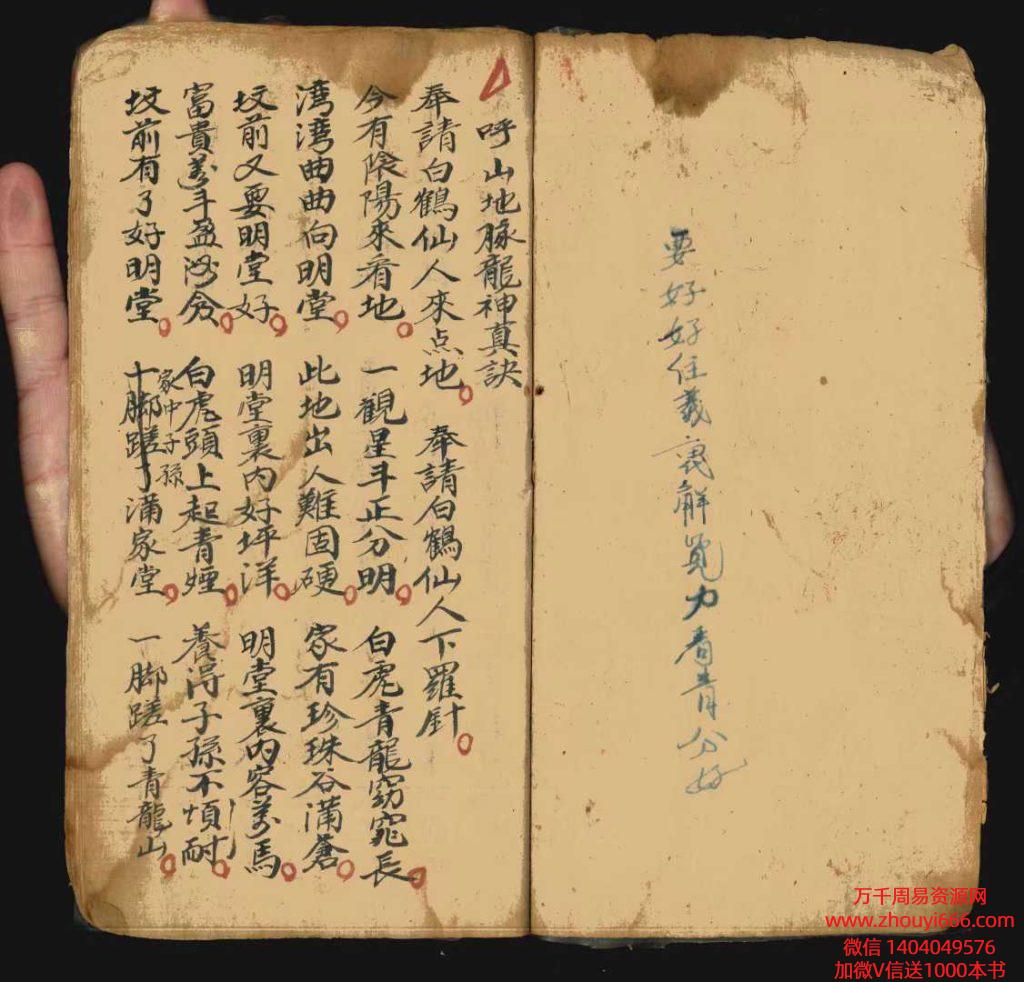 要好好住義裏解覓力看青分好
呼山地脉龍神真訣
奉請白鶴仙人來点地。奉請白鶴仙人下羅針。
今有陰陽來看地。一觀星斗正分明。白虎青龍窈窕長。
湾湾曲曲向明堂。此地出人難固硬。家有珍珠谷滿蒼。
坟前又要明堂好。明堂裏内好坪洋。明堂裏内容萬馬。
富貴萬斗盈。白虎頭上起青煙。養淂子孫不煩耐。
坟前有了好明堂。家中子孫十脚蹉了滿家堂。一脚蹉了青龍山。
万千周易资源网
www.zhouyi666.com
微信 1404049576
加微V信送1000本书